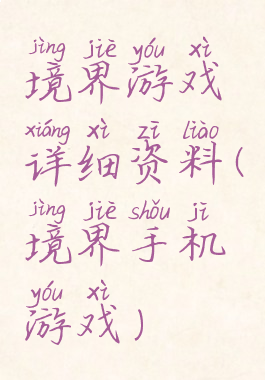 jìng jiè yóu xì
境界游戏
xiáng xì zī liào
详细资料(
jìng jiè shǒu jī
境界手机
yóu xì
游戏)